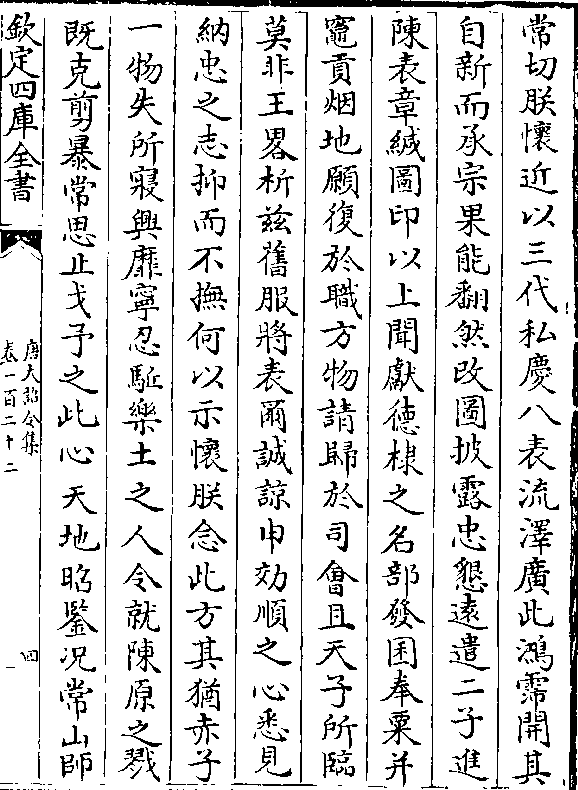 常切朕懷近以三代私慶八表流澤廣此鴻霈開其
自新而承宗果能翻然改圖披露忠懇遠遣二子進
陳表章緘圖印以上聞獻德棣之名部發囷奉粟并
竈貢烟地願復於職方物請歸於司會且天子所臨
莫非王畧析兹舊服將表爾誠諒申効順之心悉見
納忠之志抑而不撫何以示懷朕念此方其猶赤子
一物失所寢興靡寧忍駈樂土之人令就陳原之戮
既克剪暴常思止戈予之此心天地昭鍳况常山師
欽定四庫全書
唐大詔令集
卷一百二十二
四